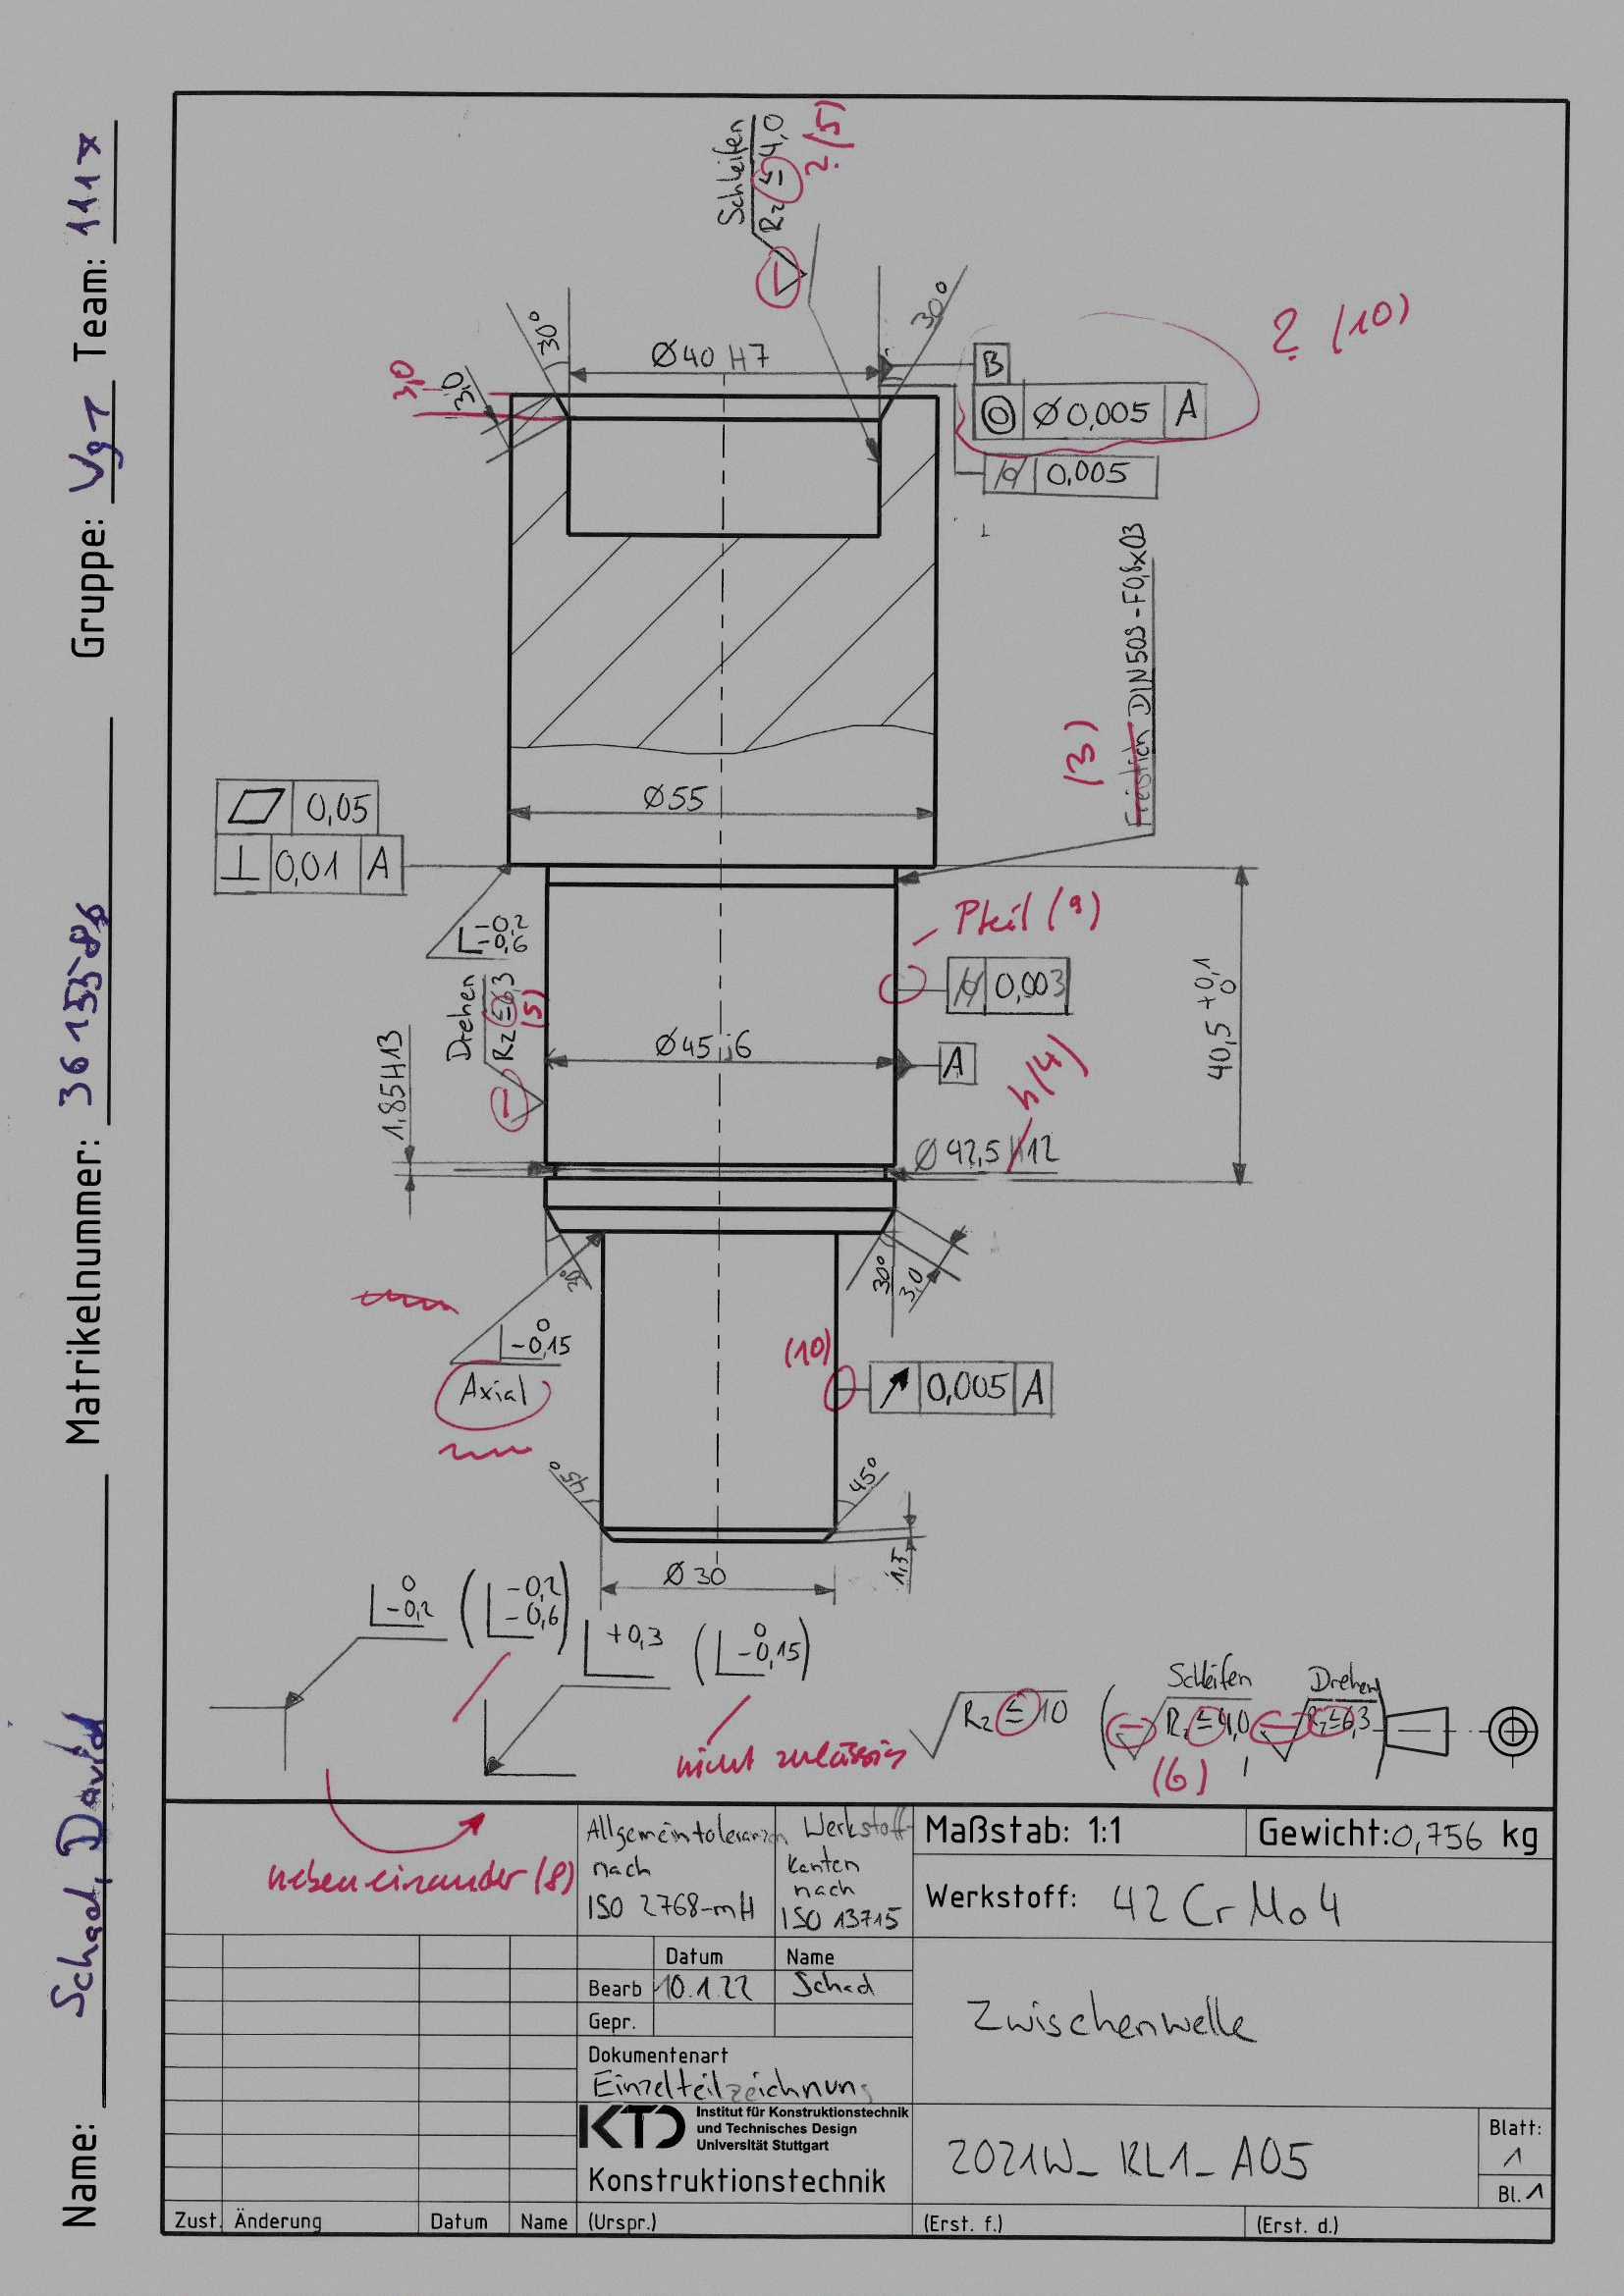 Name: Schad, David Matrikelnummer: 3615586 Gruppe: Vg1 Team: 111x
Schleifen
Rz ≤ 4,0
? (5)
30°
Ø40 H7
30°
3,0
3,0
B
Ø 0,005 A
? (10)
0,005
Freistich DIN 509 - F0,6x03
(3)
Ø55
0,05
0,01 A
-0,2
-0,6
Pfeil (9)
0,003
Drehen
Rz ≤ 6,3
(5)
Ø45 j6
A
40,5 +0,1
0
1,85H13
h (4)
Ø 42,5 H12
30°
30°
3,0
0
-0,15
Axial
(10)
0,005 A
45°
45°
1,5
Ø 30
0
-0,2
( -0,2
-0,6 )
+0,3
( 0
-0,15 )
nicht zulässig
Rz ≤ 10
( Schleifen
Rz ≤ 4,0
,
Drehen
Rz ≤ 6,3 )
(6)
nebeneinander (8)
Allgemeintoleranzen
nach
ISO 2768-mH
Werkstoff-
kanten
nach
ISO 13715
Maßstab: 1:1
Gewicht: 0,756 kg
Werkstoff: 42 Cr Mo 4
Datum Name
Bearb 10.1.22 Schad
Gepr.
Zwischenwelle
Dokumentenart
Einzelteilzeichnung
KTD
Institut für Konstruktionstechnik
und Technisches Design
Universität Stuttgart
Konstruktionstechnik
2021W_KL1_A05
Blatt:
1
Bl. 1
Zust. Änderung Datum Name (Urspr.) (Erst. f.) (Erst. d.)